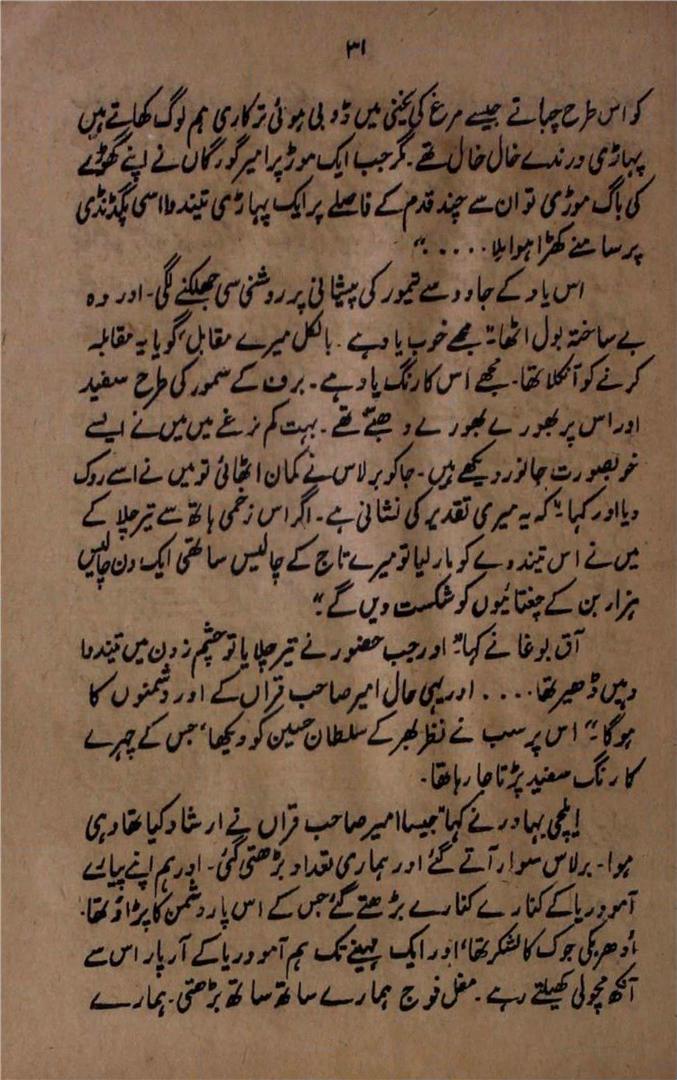 ۳۱
کو اس طرح چباتے جیسے مرغ کی یخنی میں ڈوبی ہوئی ترکاری ہم لوگ کھاتے ہیں
پہاڑی درندے خال خال تھے۔ مگر جب ایک موڑ پر امیر گورگاں نے اپنے گھوڑے
کی باگ موڑی تو ان سے چند قدم کے فاصلے پر ایک پہاڑی تیندوا اسی پگڈنڈی
پر سامنے کھڑا ہوا ملا . . . . ."
اس یاد کے جادو سے تیمور کی پیشانی پر روشنی سی جھلکنے لگی۔ اور وہ
بے ساختہ بول اٹھا۔ "مجھے خوب یاد ہے۔ بالکل میرے مقابل، گویا یہ مقابلہ
کرنے کو آنکلا تھا۔ مجھے اس کا رنگ یاد ہے۔ برف کے سمور کی طرح سفید
اور اس پر بھورے بھورے دھبے تھے۔ بہت کم نرغے میں میں نے ایسے
خوبصورت جانور دیکھے ہیں۔ جاکو برلاس نے کمان اٹھائی تو میں نے اسے روک
دیا اور کہا۔ "کہ یہ میری تقدیر کی نشانی ہے۔ اگر اس زخمی ہاتھ سے تیر چلا کے
میں نے اس تیندوے کو مار لیا تو میرے تاج کے چالیس ساتھی ایک دن چالیس
ہزار بن کے چغتائیوں کو شکست دیں گے۔"
آق بوغا نے کہا۔ "اور جب حضور نے تیر چلایا تو چشم زدن میں تیندوا
وہیں ڈھیر تھا . . . . اور یہی حال امیر صاحب قراں کے اور دشمنوں کا
ہوگا۔" اس پر سب نے نظر بھر کے سلطان حسین کو دیکھا، جس کے چہرے
کا رنگ سفید پڑتا جا رہا تھا۔
ایلچی بہادر نے کہا "جیسا امیر صاحب قراں نے ارشاد کیا تھا وہی
ہوا۔ برلاس سوار آتے گئے اور ہماری تعداد بڑھتی گئی۔ اور ہم اپنے پیارے
آمو دریا کے کنارے کنارے بڑھتے گئے جس کے اس پار دشمن کا پڑاؤ تھا۔
اُدھر بکی جوک کا لشکر تھا، اور ایک مہینے تک ہم آمو دریا کے آر پار اس سے
آنکھ مچولی کھیلتے رہے۔ مغل فوج ہمارے ساتھ ساتھ بڑھتی۔ ہمارے